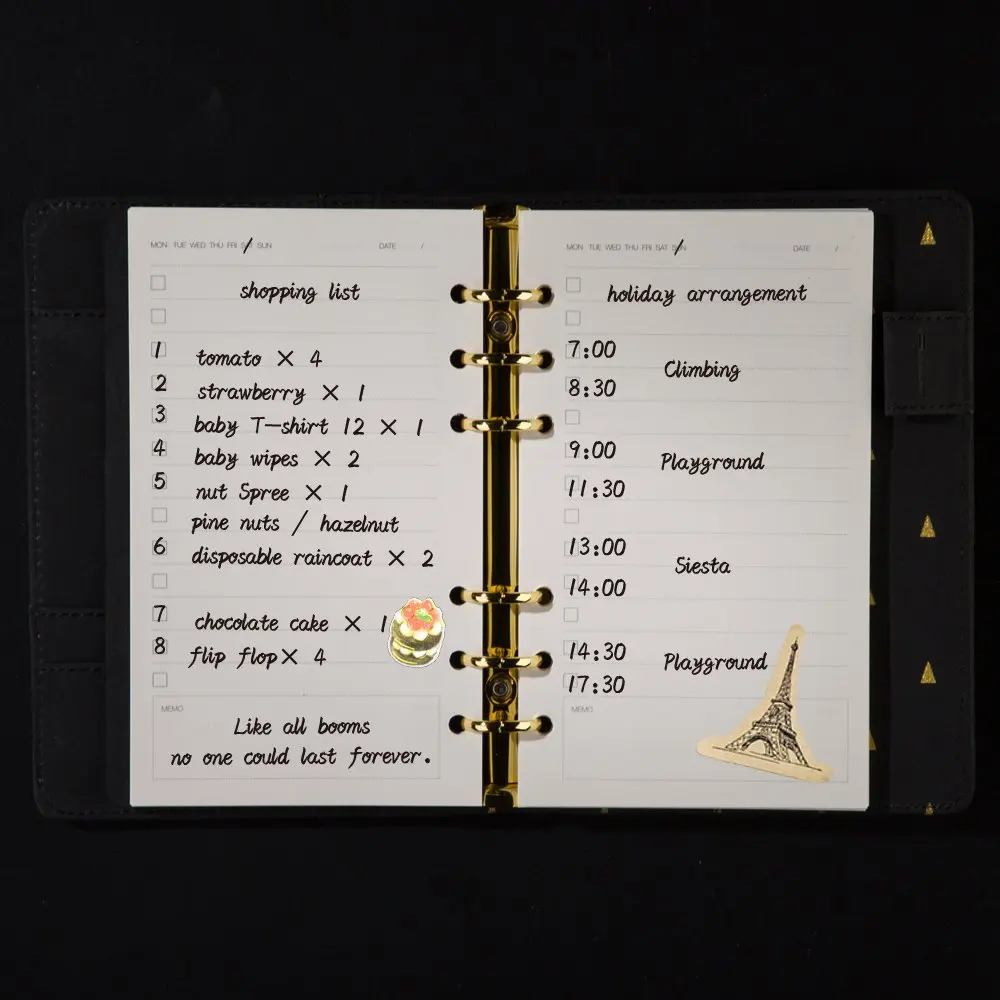 MON TUE WED THU FRI SAT SUN DATE /
shopping list
1 tomato × 4
2 strawberry × 1
3 baby T-shirt 12 × 1
4 baby wipes × 2
5 nut Spree × 1
pine nuts / hazelnut
6 disposable raincoat × 2
7 chocolate cake × 1
8 flip flop× 4
MEMO
Like all booms
no one could last forever.
MON TUE WED THU FRI SAT SUN DATE /
holiday arrangement
7:00
Climbing
8:30
9:00
Playground
11:30
13:00
Siesta
14:00
14:30
Playground
17:30
MEMO